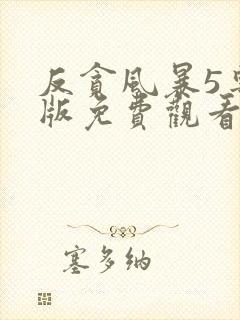 反貪風暴5
版免費觀看
塞多納